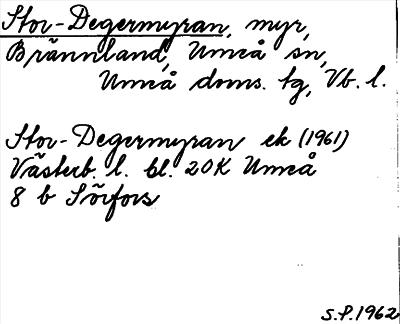 Stor-Degermyran, myr,
Brännland, Umeå sn,
Umeå doms. tg, Vb. l.
Stor-Degermyran ek (1961)
Västerb. l. bl. 20K Umeå
8 b Sörfors
S.P.1962